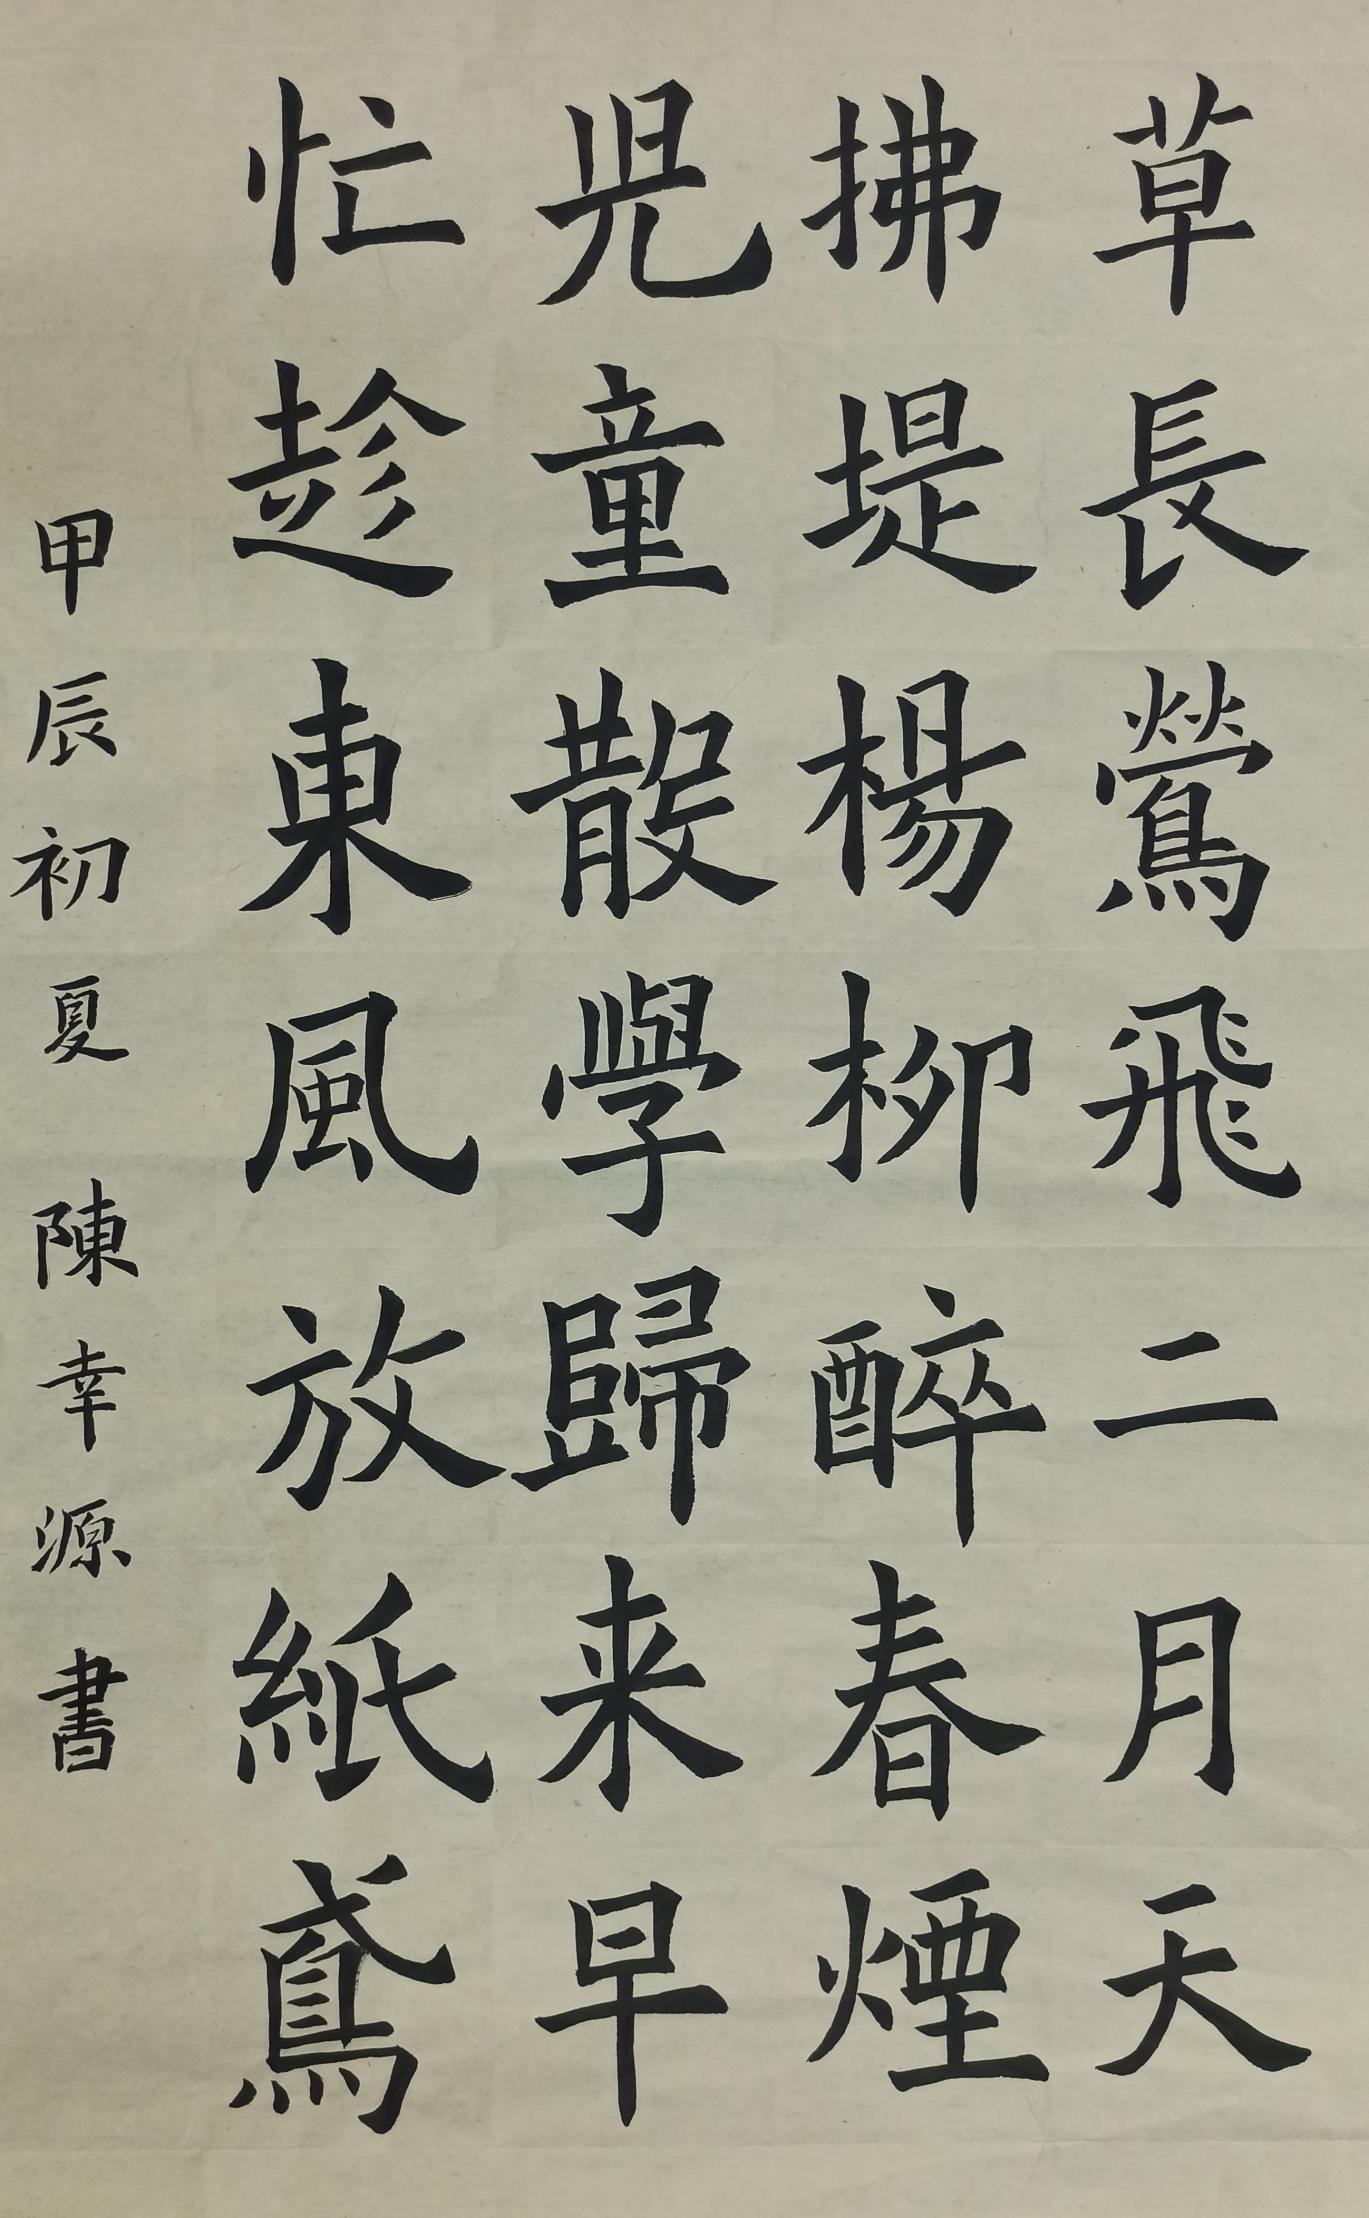 草長鶯飛二月天
拂堤楊柳醉春煙
児童散學歸来早
忙趁東風放紙鳶
甲辰初夏 陳幸源書